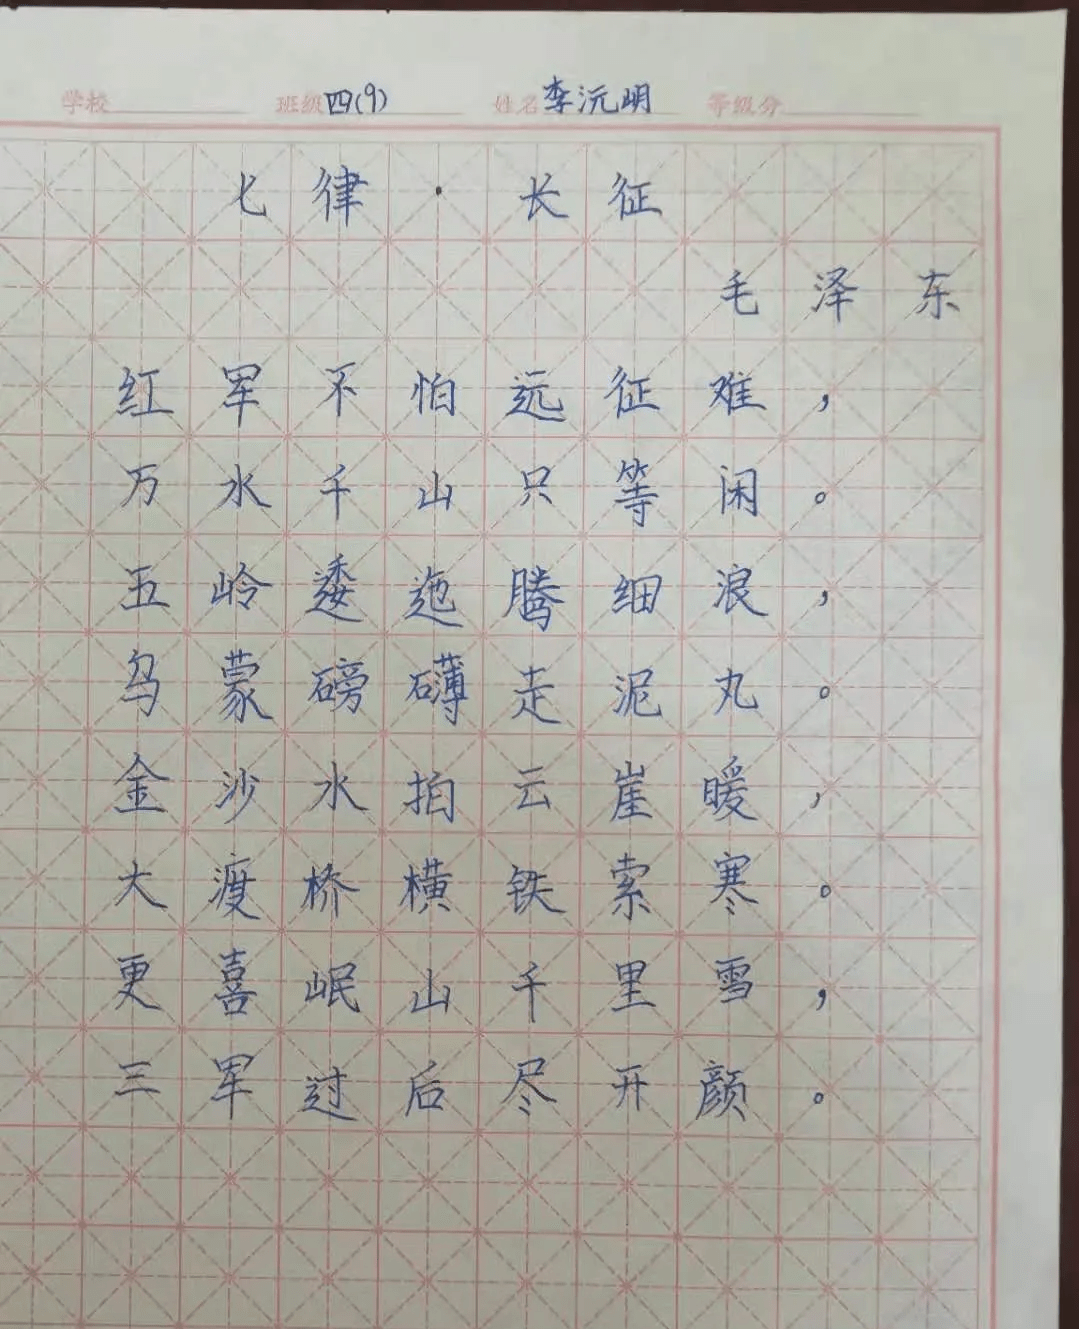 学校 班级 四(9) 姓名 李沅明 等级分
七律·长征
毛泽东
红军不怕远征难，
万水千山只等闲。
五岭逶迤腾细浪，
乌蒙磅礴走泥丸。
金沙水拍云崖暖，
大渡桥横铁索寒。
更喜岷山千里雪，
三军过后尽开颜。